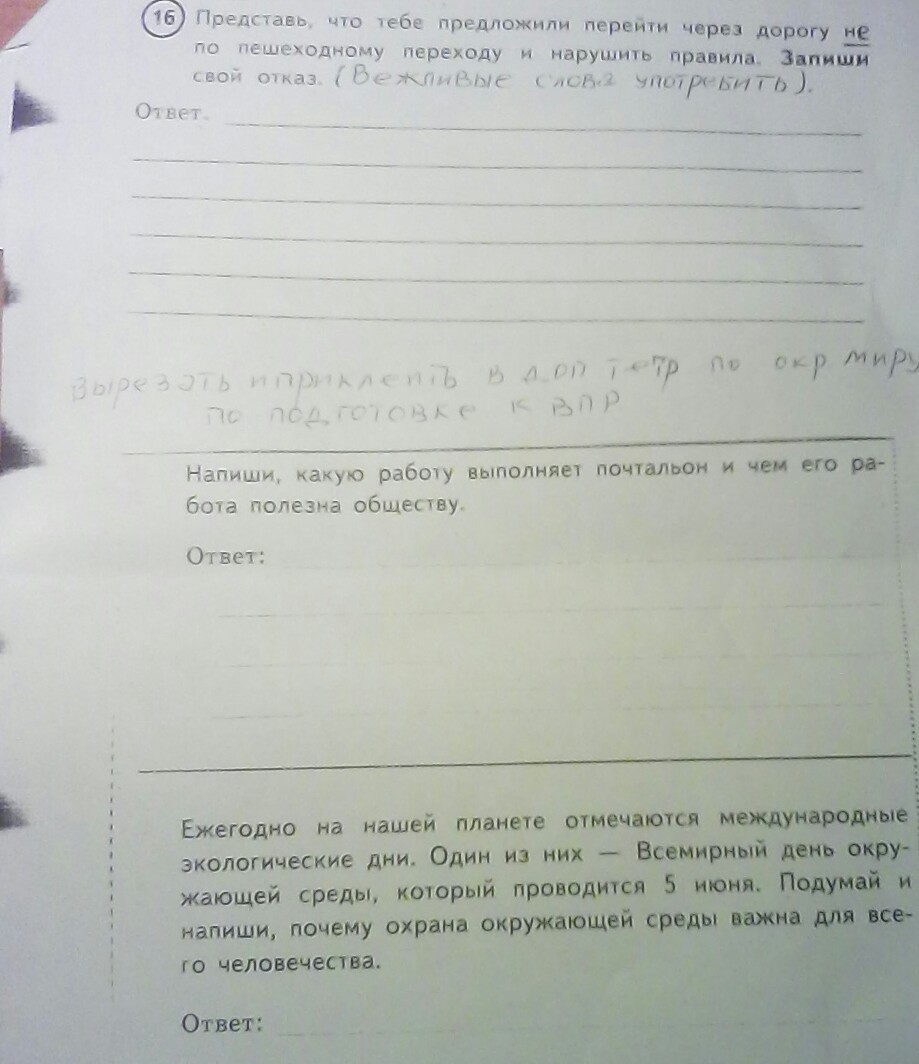 16 Представь, что тебе предложили перейти через дорогу не
по пешеходному переходу и нарушить правила. Запиши
свой отказ. (Вежливые слова употребить).
Ответ.
вырезать и приклеить в доп тетр по окр миру
по подготовке к ВПР
Напиши, какую работу выполняет почтальон и чем его ра-
бота полезна обществу.
Ответ:
Ежегодно на нашей планете отмечаются международные
экологические дни. Один из них — Всемирный день окру-
жающей среды, который проводится 5 июня. Подумай и
напиши, почему охрана окружающей среды важна для все-
го человечества.
Ответ: